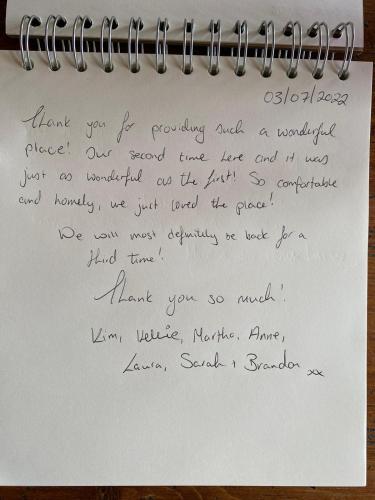 03/07/2022
Thank you for providing such a wonderful
place! Our second time here and it was
just as wonderful as the first! So comfortable
and homely, we just loved the place!
We will most definitely be back for a
third time!
Thank you so much!
Kim, Kellie, Martha, Anne,
Laura, Sarah + Brandon xx